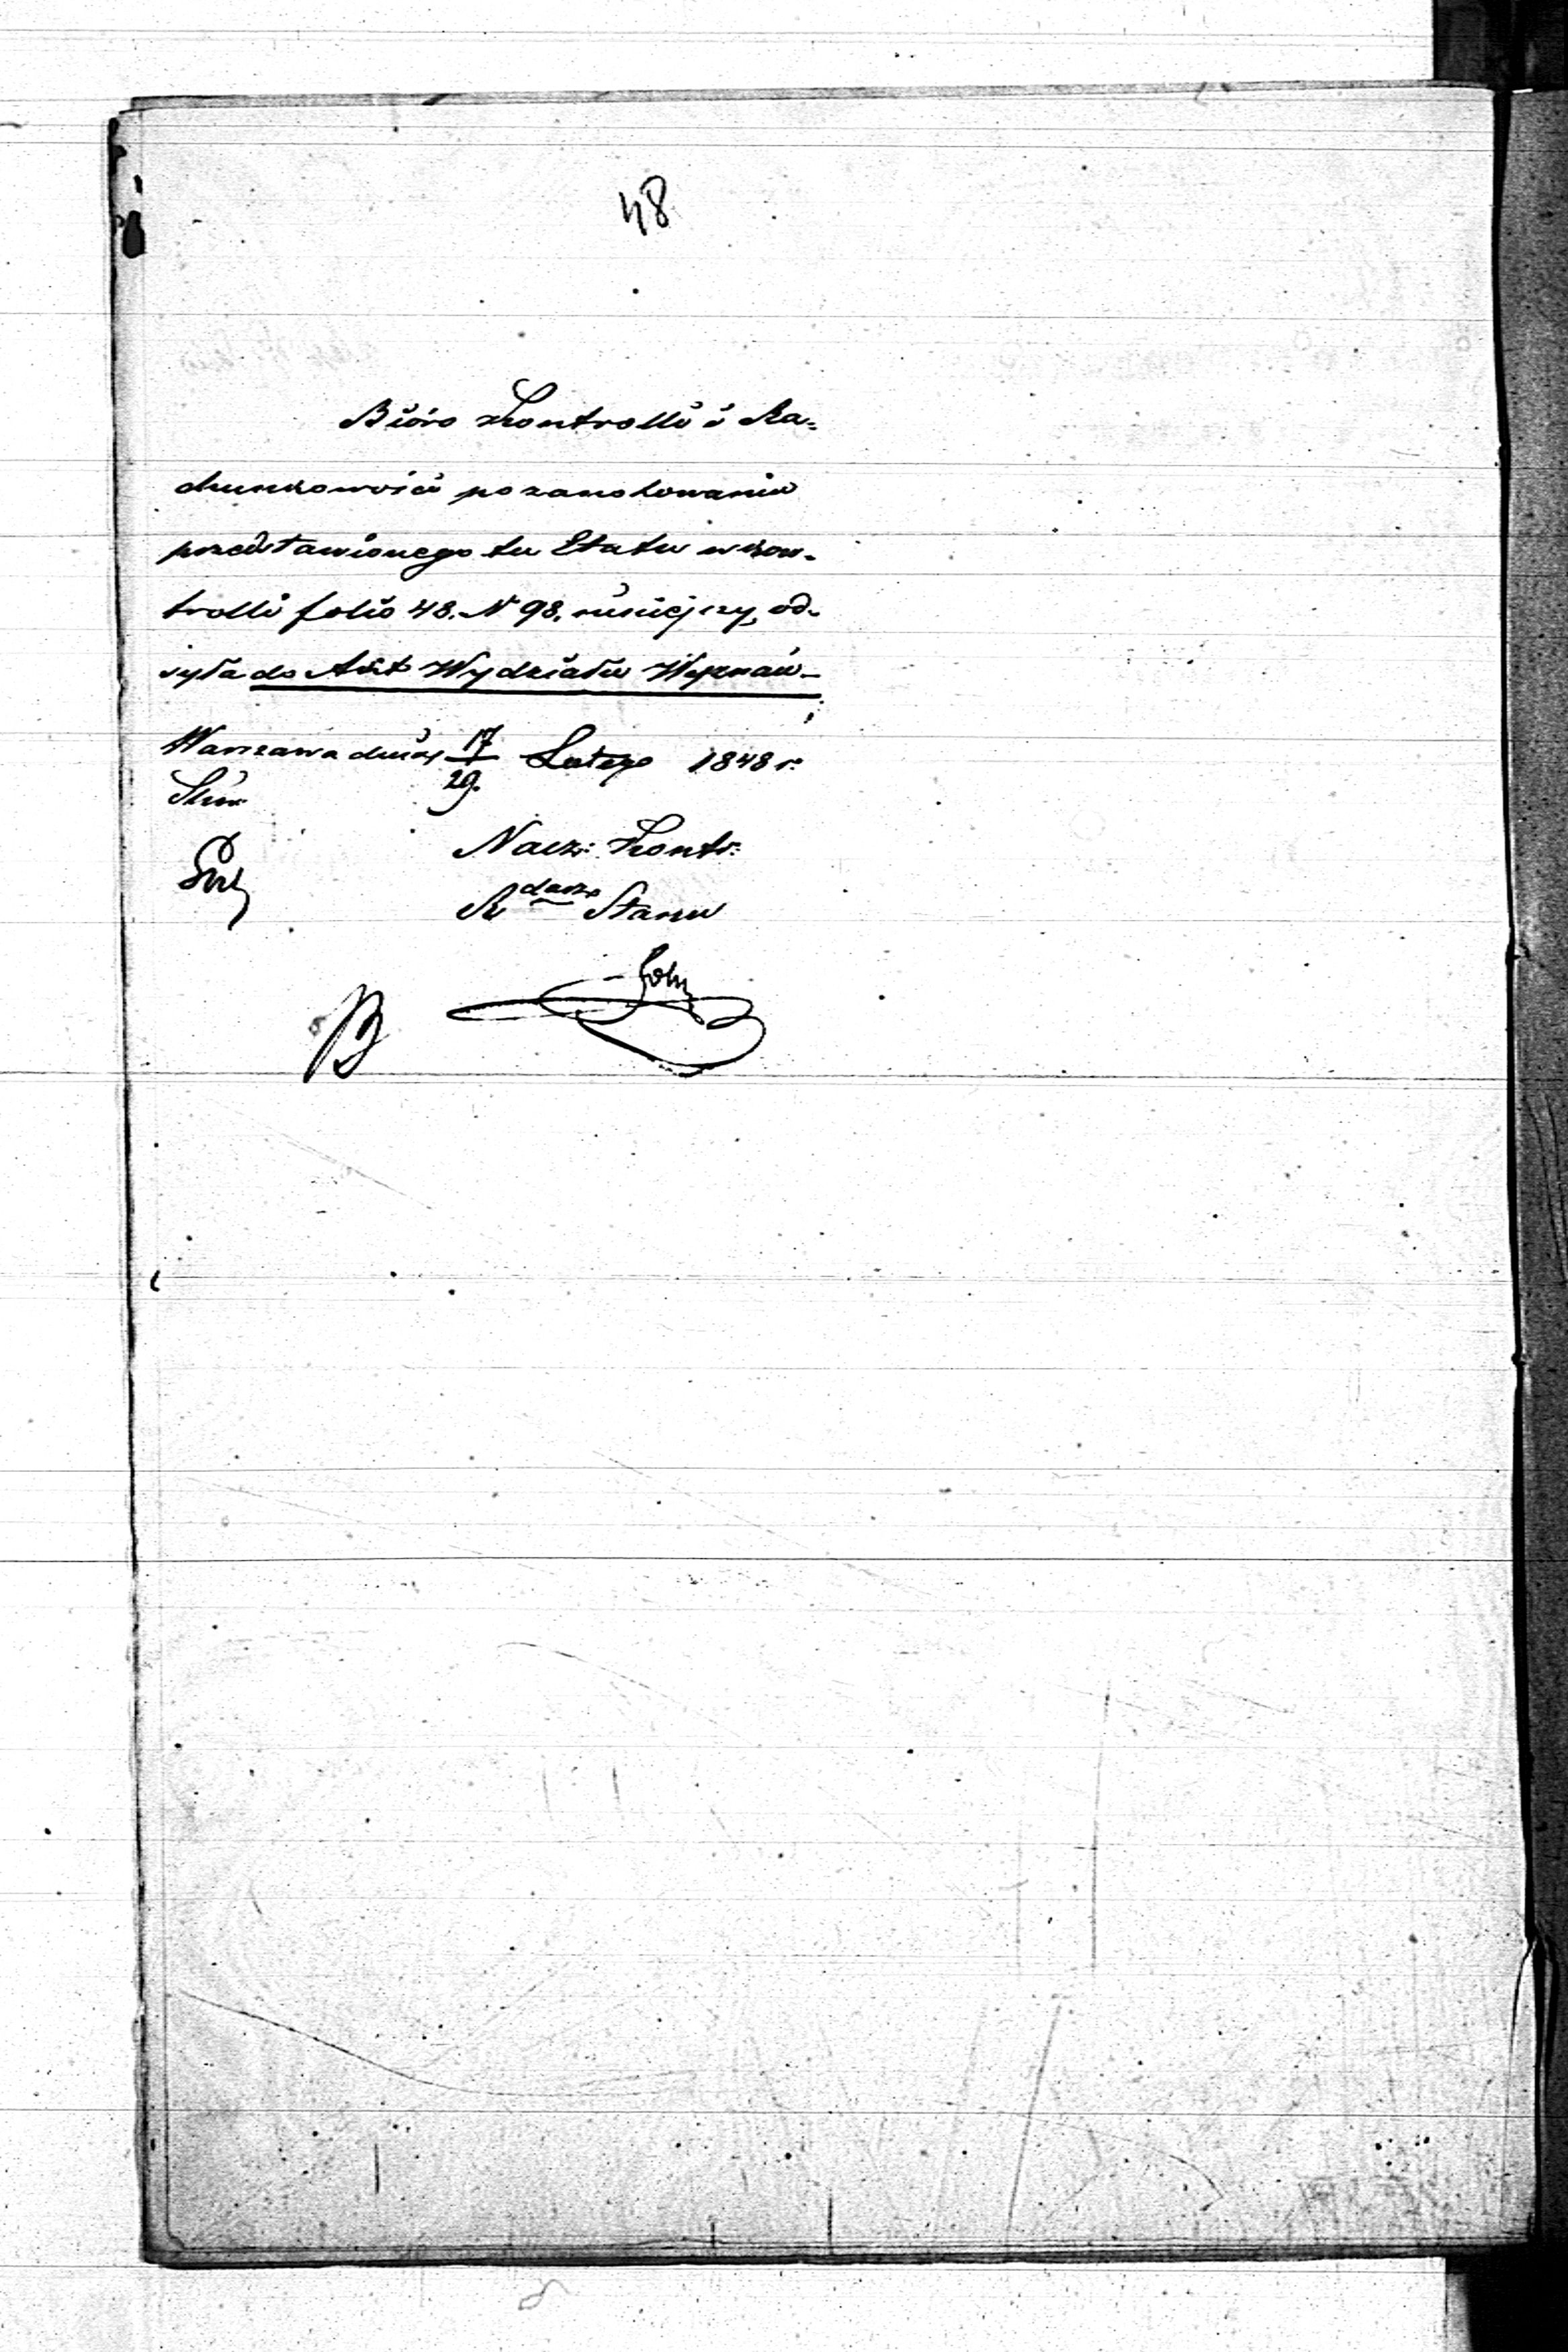 48
Biόro Kontrolli i Ra=
chunkowości po zanotowaniu
przedstawionego tu Etatu w kon-
trolli folio 48. N 98. niniejszy, od-
syła do Akt Wydziału Wyznań-
Warszawa dnia 17/29. Lutego 1848 r.
Nacz: Kontr:
R darz Stanu